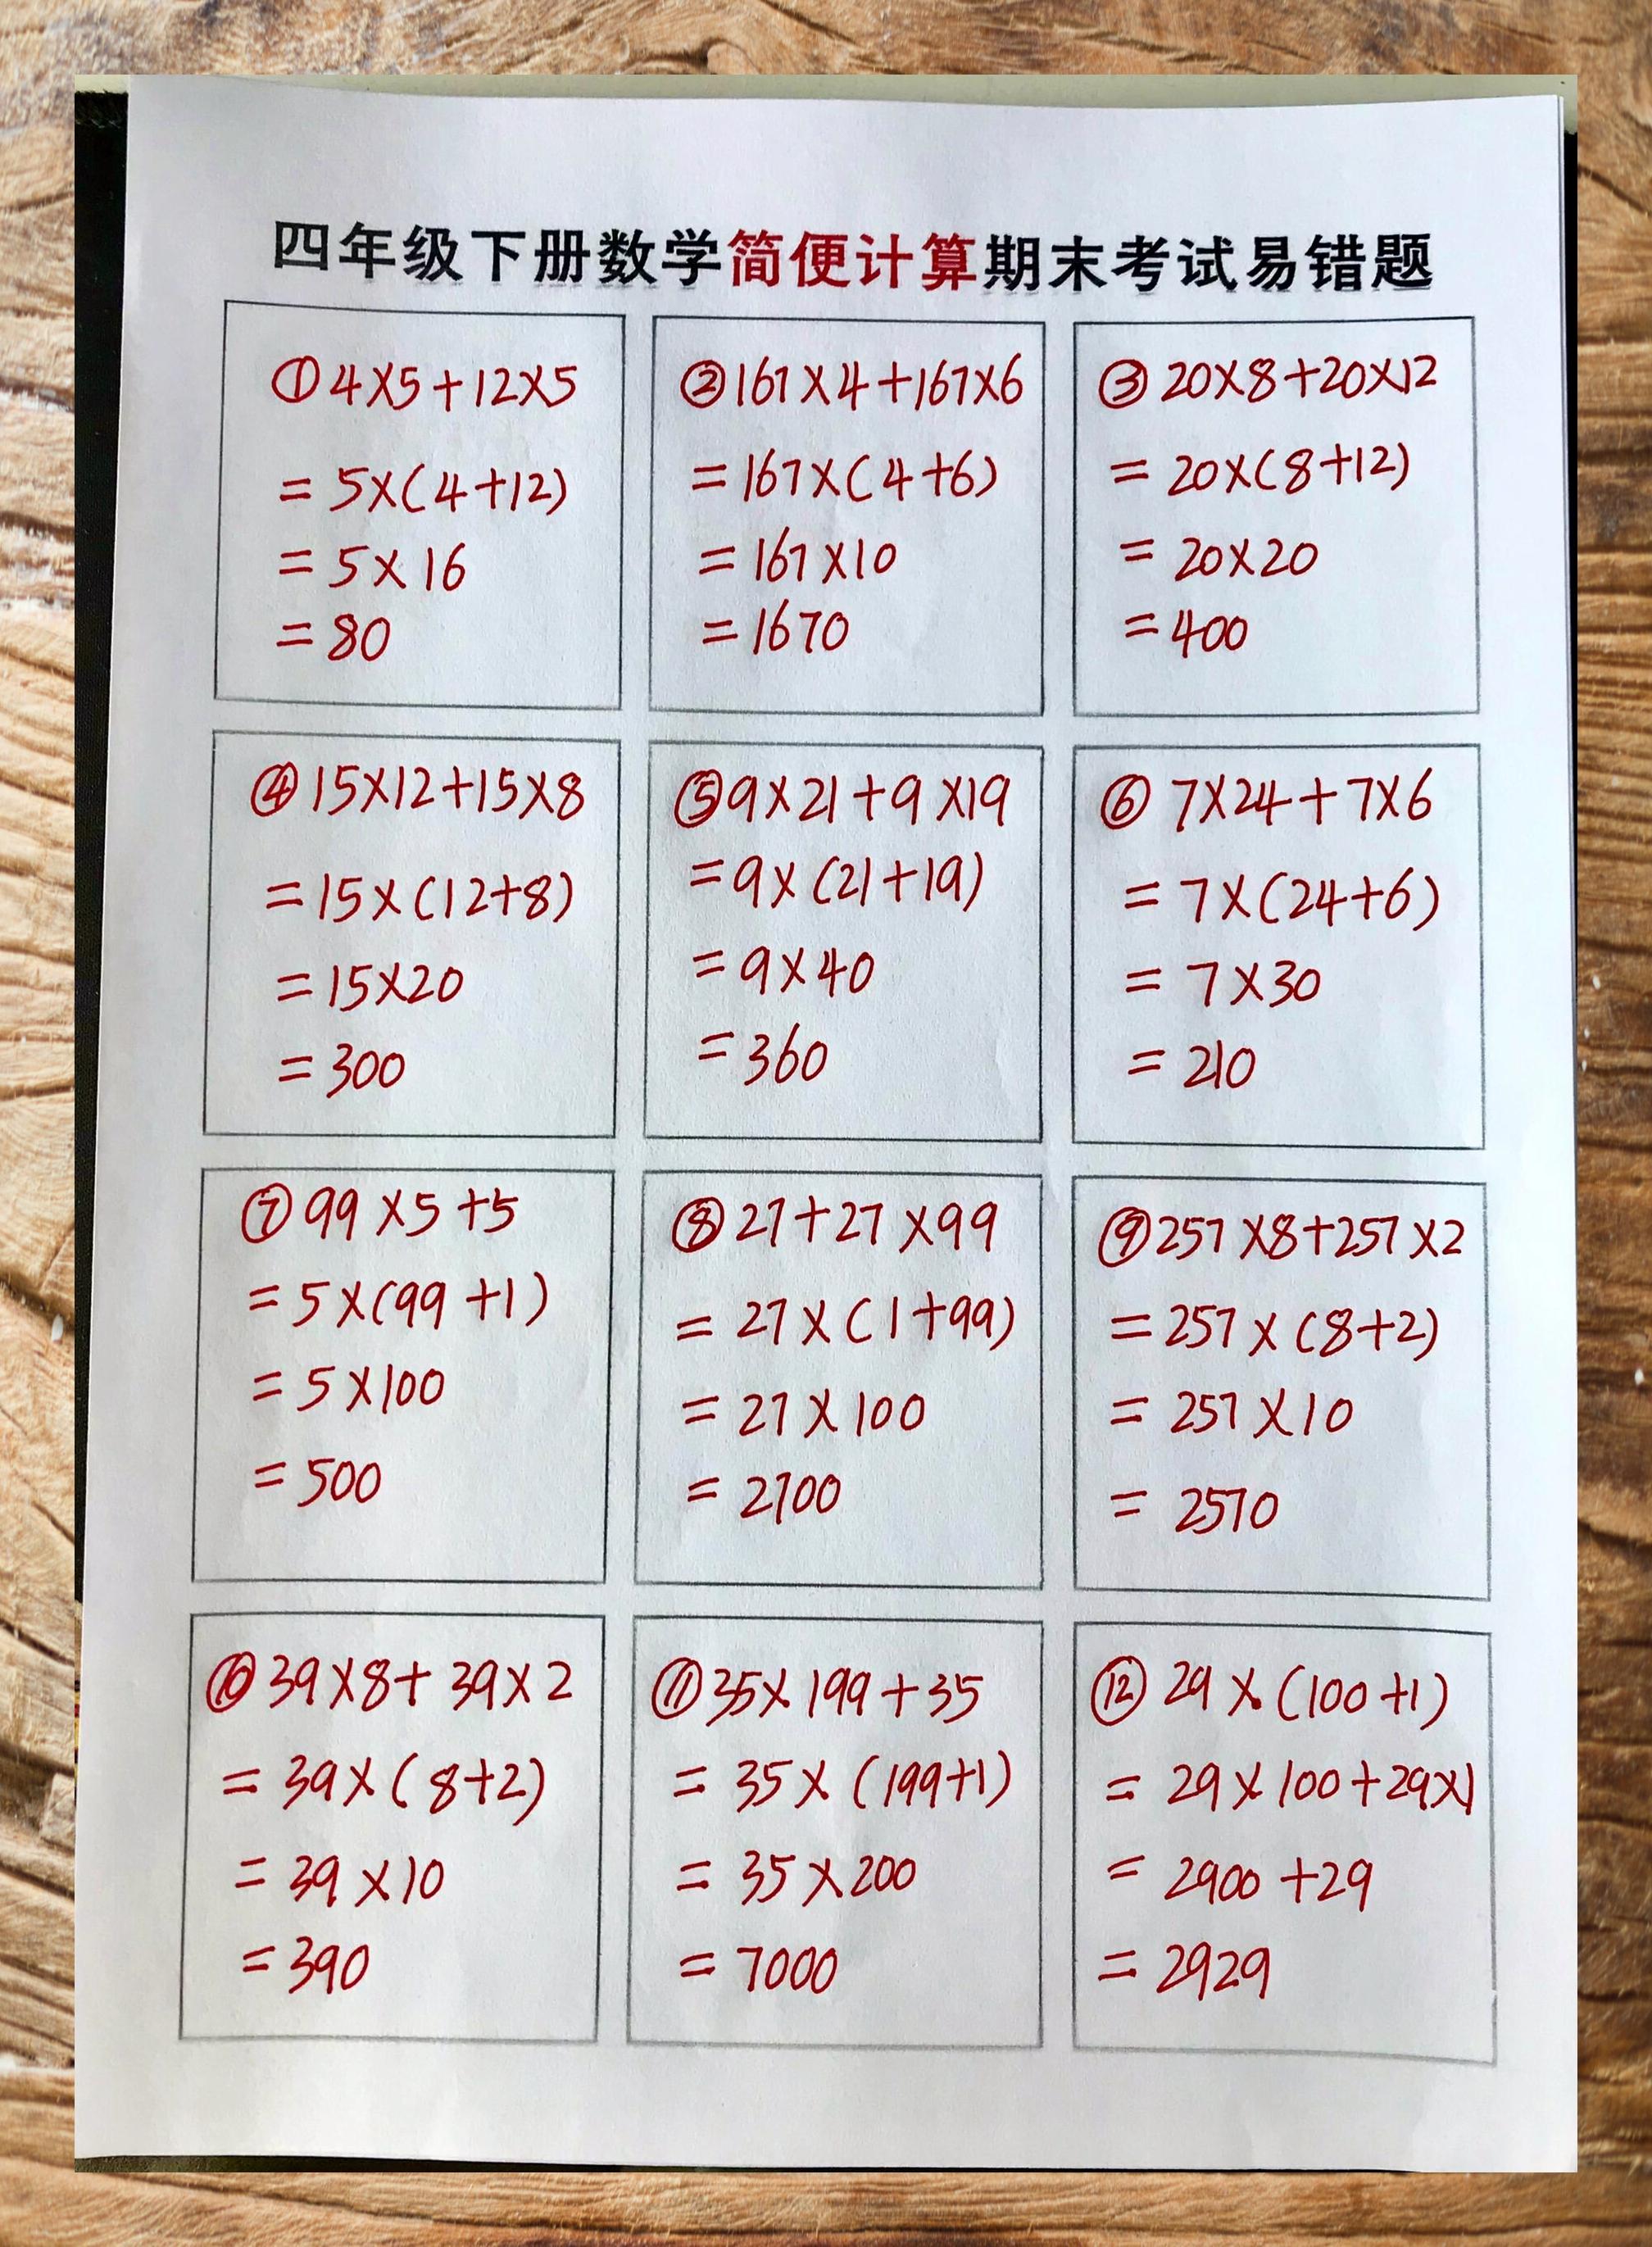 四年级下册数学简便计算期末考试易错题
①4×5+12×5
=5×(4+12)
=5×16
=80
②167×4+167×6
=167×(4+6)
=167×10
=1670
③20×8+20×12
=20×(8+12)
=20×20
=400
④15×12+15×8
=15×(12+8)
=15×20
=300
⑤9×21+9×19
=9×(21+19)
=9×40
=360
⑥7×24+7×6
=7×(24+6)
=7×30
=210
⑦99×5+5
=5×(99+1)
=5×100
=500
⑧27+27×99
=27×(1+99)
=27×100
=2700
⑨257×8+257×2
=257×(8+2)
=257×10
=2570
⑩39×8+39×2
=39×(8+2)
=39×10
=390
⑪35×199+35
=35×(199+1)
=35×200
=7000
⑫29×(100+1)
=29×100+29×1
=2900+29
=2929